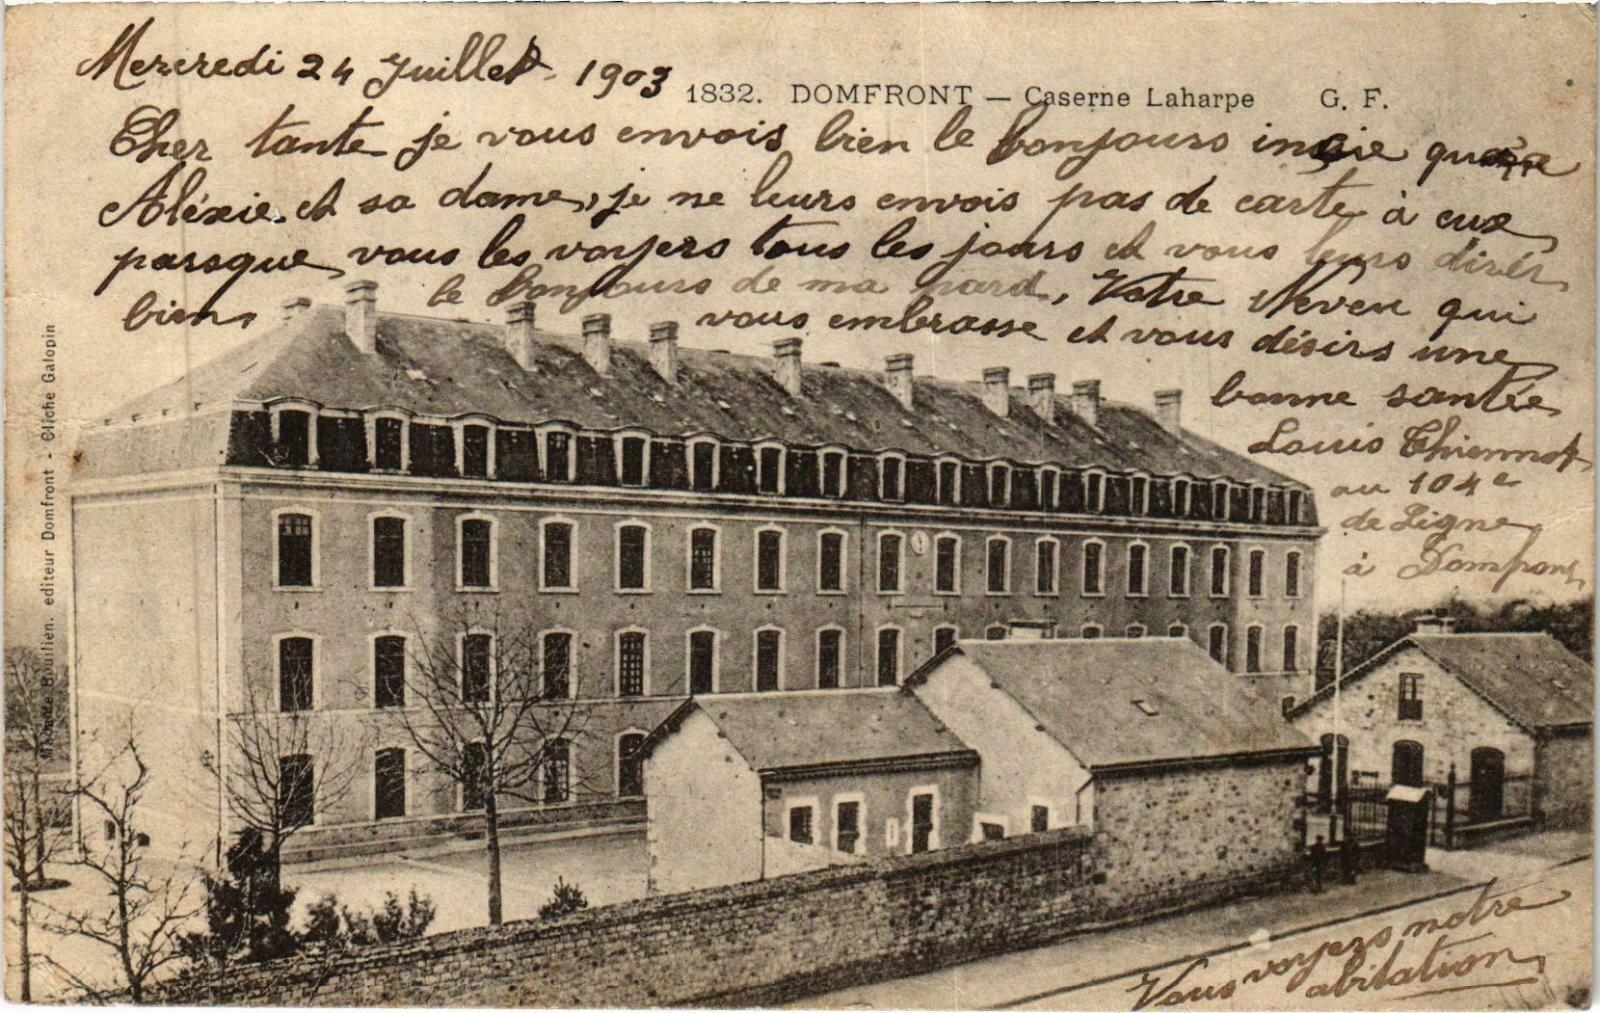 Mercredi 24 Juillet 1903
1832. DOMFRONT — Caserne Laharpe G. F.
Cher tante je vous envois bien le bonjours insie que
Aléxie et sa dame, je ne leurs envois pas de carte à eux
parsque vous les voyers tous les jours et vous leurs dirér
bien le bonjours de ma pard, Votre Neveu qui
vous embrasse et vous désirs une
bonne santée
Louis Thiennot
au 104e
de Ligne
à Domfront
Vous voyers notre
abitation
Bourlien. editeur Domfront - Cliche Galopin